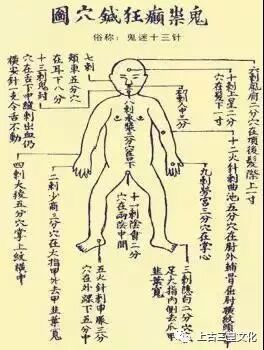 鬼祟癲狂鍼穴圖
俗称：鬼迷十三针
六刺風府二分穴在項後髮際上一寸
十刺上星二分穴在髮上一寸
十二火針刺曲池五分穴在肘外輔骨曲肘橫紋頭
九刺勞宮三分穴在掌心
三刺隱白二分穴在足大指內側去爪甲韭葉寬
十一刺陰會二分穴在兩陰中間
五火針刺申脈三分穴在外踝下五分中
二刺少商三分穴在大指甲外去甲韭葉寬
四刺大陵五分穴掌上紋橫中
十三刺鬼封穴在舌下中縫刺出血仍橫安針一支令舌不動
七刺頰車五分穴在耳下八分
八刺承漿二分穴唇下
上古三皇文化